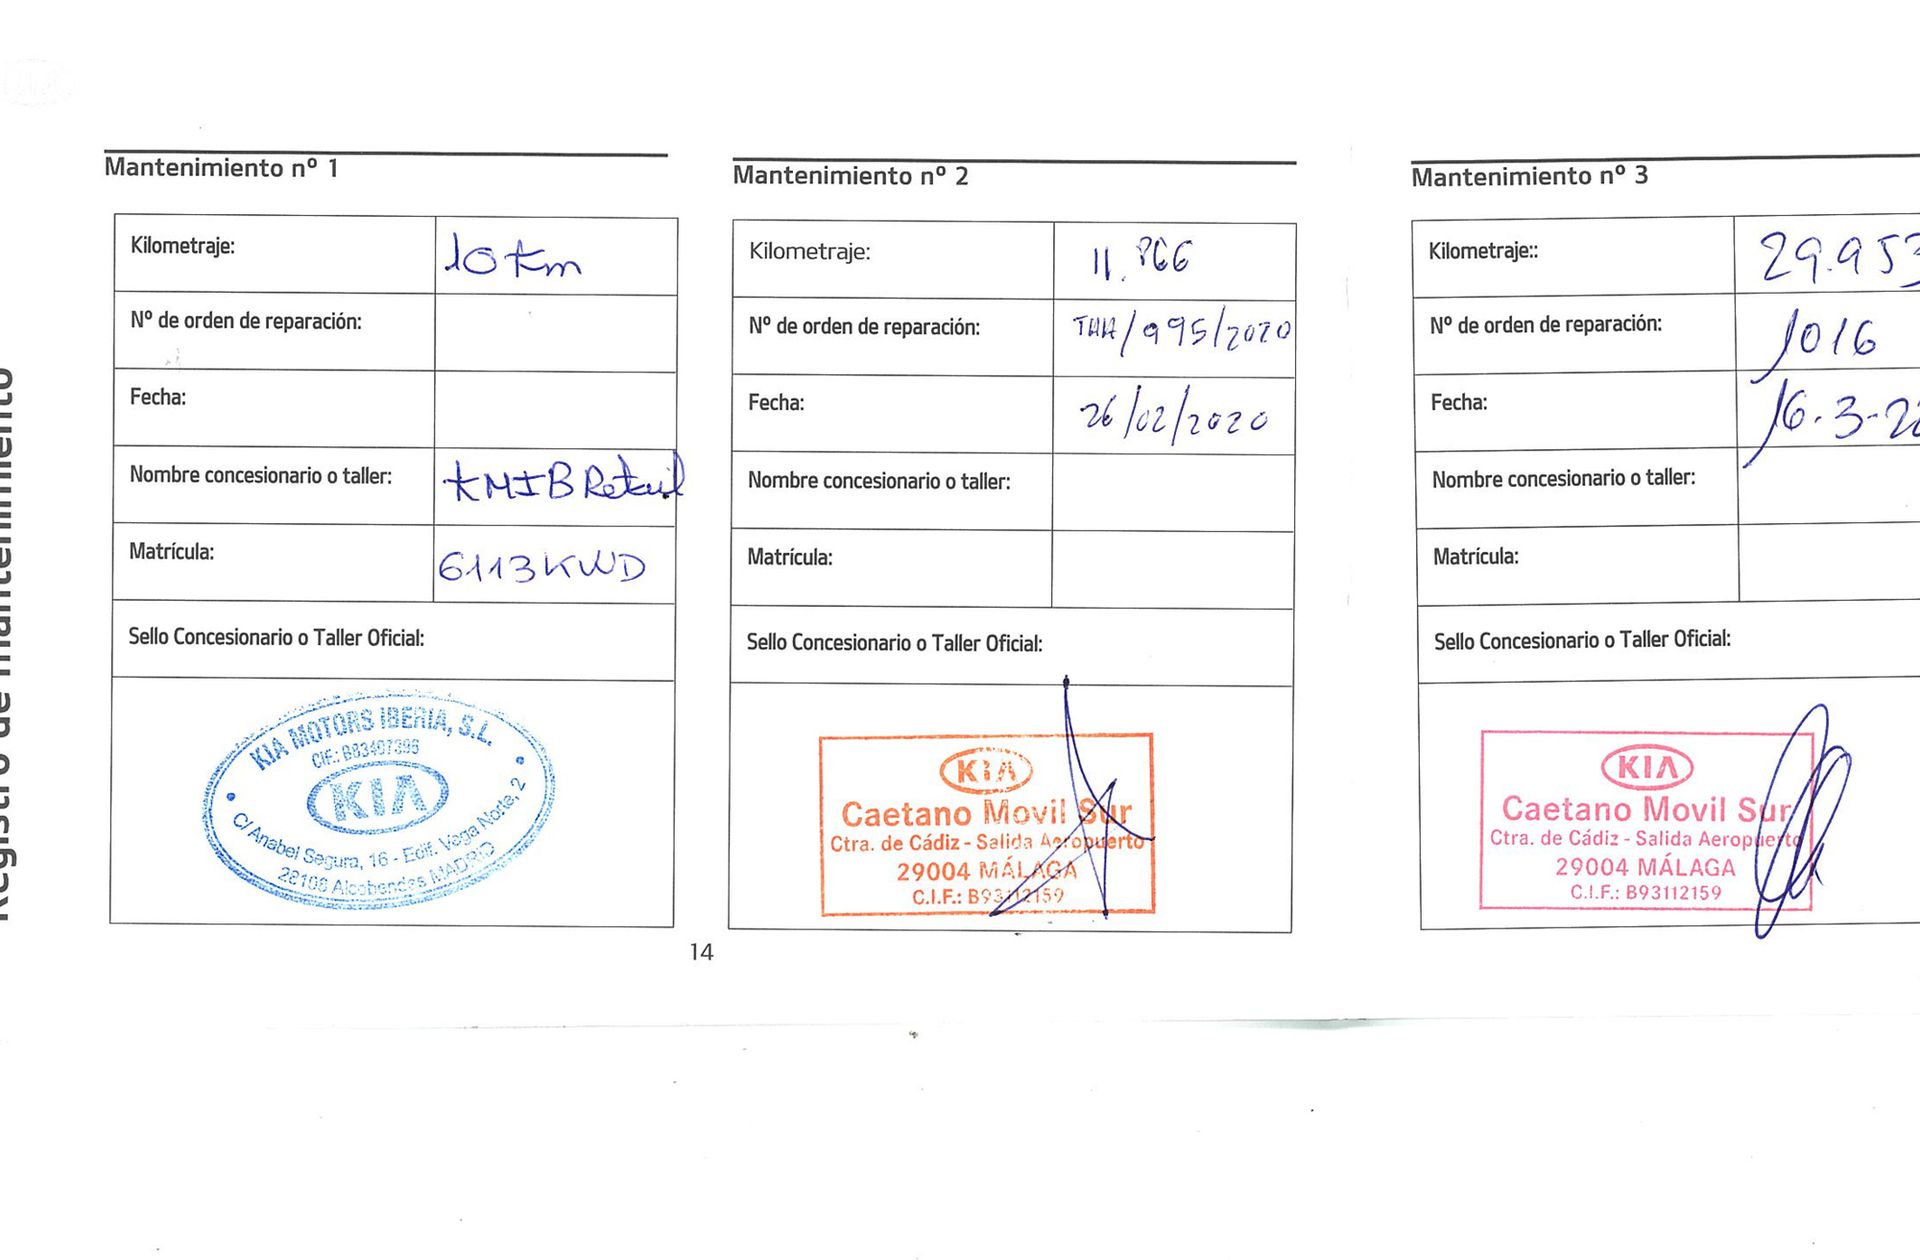 Registro de mantenimiento
Mantenimiento nº 1
Kilometraje: 10 Km
Nº de orden de reparación:
Fecha:
Nombre concesionario o taller: KMIB Retail
Matrícula: 6113KWD
Sello Concesionario o Taller Oficial:
KIA MOTORS IBERIA, S.L.
CIF.: B83407396
KIA
C/ Anabel Segura, 16 - Edif. Vega Norte, 2
28108 Alcobendas MADRID
14
Mantenimiento nº 2
Kilometraje: 11.
Nº de orden de reparación: /995/2020
Fecha: 26/02/2020
Nombre concesionario o taller:
Matrícula:
Sello Concesionario o Taller Oficial:
KIA
Caetano Movil Sur
Ctra. de Cádiz - Salida Aeropuerto
29004 MÁLAGA
C.I.F.: B93112159
Mantenimiento nº 3
Kilometraje:: 29.953
Nº de orden de reparación: 1016
Fecha: 16-3-2
Nombre concesionario o taller:
Matrícula:
Sello Concesionario o Taller Oficial:
KIA
Caetano Movil Sur
Ctra. de Cádiz - Salida Aeropuerto
29004 MÁLAGA
C.I.F.: B93112159